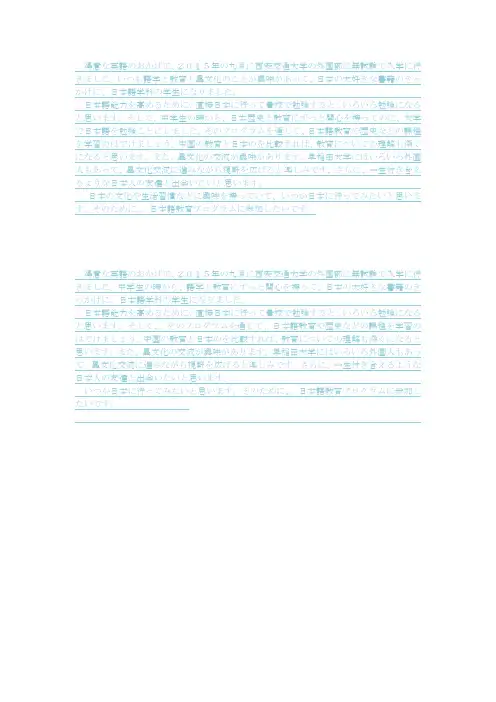 優秀な英語のおかげで、２０１５年の九月に西安交通大学の外国語に無試験で入学に行
きました。いつも語学と教育と異文化のことが興味があって、日本の大好きな書籍のきっ
かけに、日本語学科の学生になりました。
日本語能力を高めるために、直接日本に行って最後で勉強すると、いろいろ勉強になる
と思います。そして、中学生の時から、日本歴史と教育にずっと関心を持ってのに、大学
で日本語を勉強しといいました。そのプログラムを通して、日本語教育や歴史などの課程
を学習のはずけましょう。中国の教育と日本のを比較すれば、教育についての理解も深く
になると思います。また、異文化の交流が興味があります。早稲田大学にはいろいろ外国
人もあって、異文化交流に進みながら視野を広げると楽しみです。さらに、一生付き合え
るような日本人の友達と出会いたいと思います。
日本の文化や生活習慣などに興味を持っていて、いつか日本に行ってみたいと思いま
す。そのために、 日本語教育プログラムに参加したいです。
優秀な英語のおかげで、２０１５年の九月に西安交通大学の外国語に無試験で入学に行
きました。中学生の時から、語学と教育にずっと関心を持って、日本の大好きな書籍のき
っかけに、日本語学科の学生になりました。
日本語能力を高めるために、直接日本に行って最後で勉強すると、いろいろ勉強になる
と思います。そして、 そのプログラムを通して、日本語教育や歴史などの課程を学習の
はずけましょう。中国の教育と日本のを比較すれば、教育についての理解も深くになると
思います。また、異文化の交流が興味があります。早稲田大学にはいろいろ外国人もあっ
て、異文化交流に進みながら視野を広げると楽しみです。さらに、一生付き合えるような
日本人の友達と出会いたいと思います。
いつか日本に行ってみたいと思います。そのために、 日本語教育プログラムに参加し
たいです。